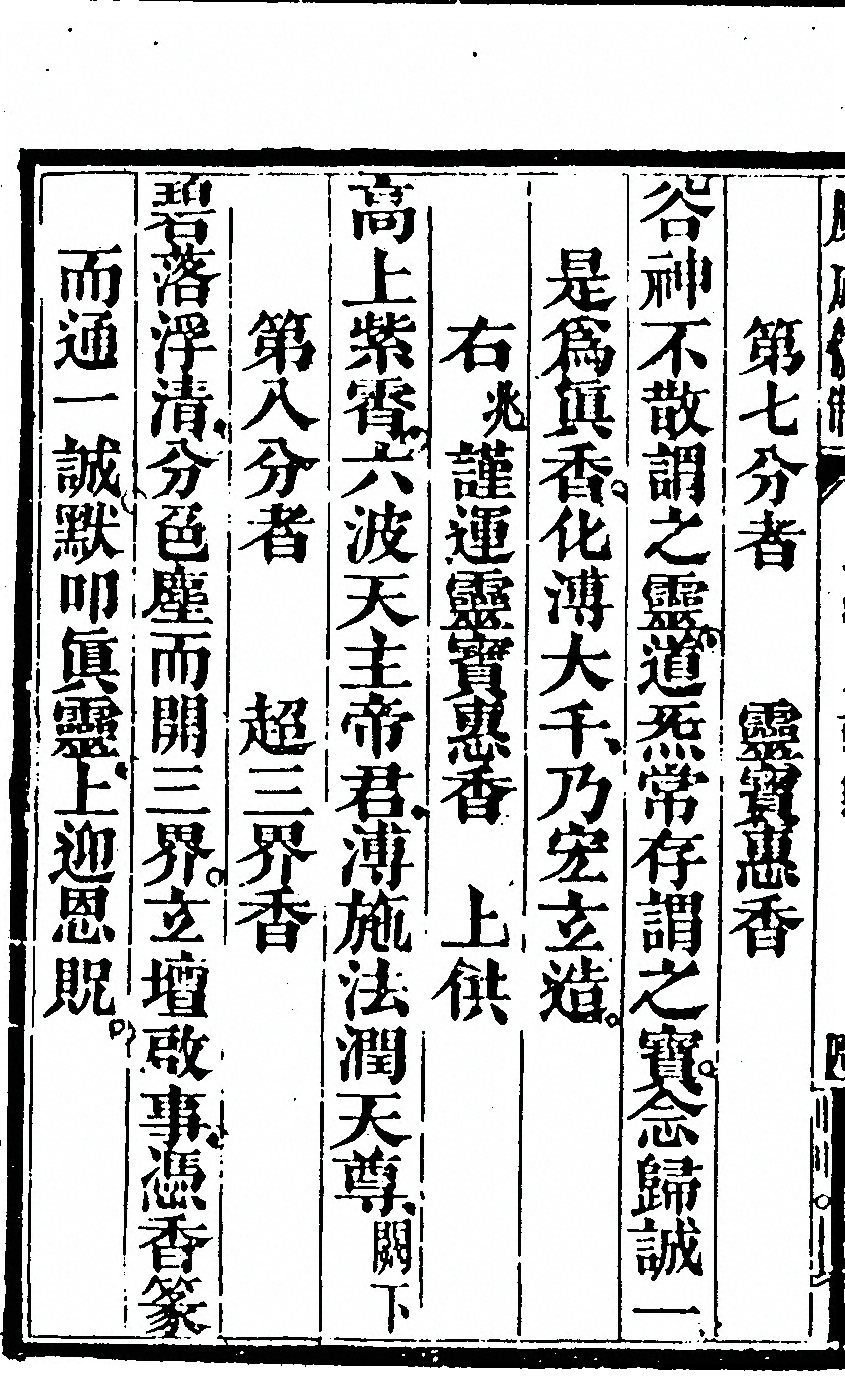 第七分者　靈寶惠香
谷神不散謂之靈道炁常存謂之寶念歸誠一
是爲眞香化溥大千乃宏立造
右兆謹運靈寶惠香　上供
高上紫霄六波天主帝君溥施法潤天尊闕下
第八分者　超三界香
碧落浮清分色塵而開三界立壇啟事憑香篆
而通一誠默叩眞靈上迎恩貺